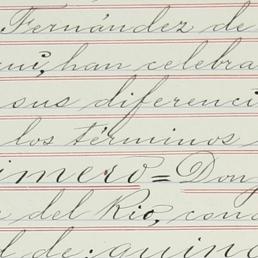 Fernández de
uí, han celebra
sus diferenci
los términos
imero = Don
del Rio, con
d de: quinc